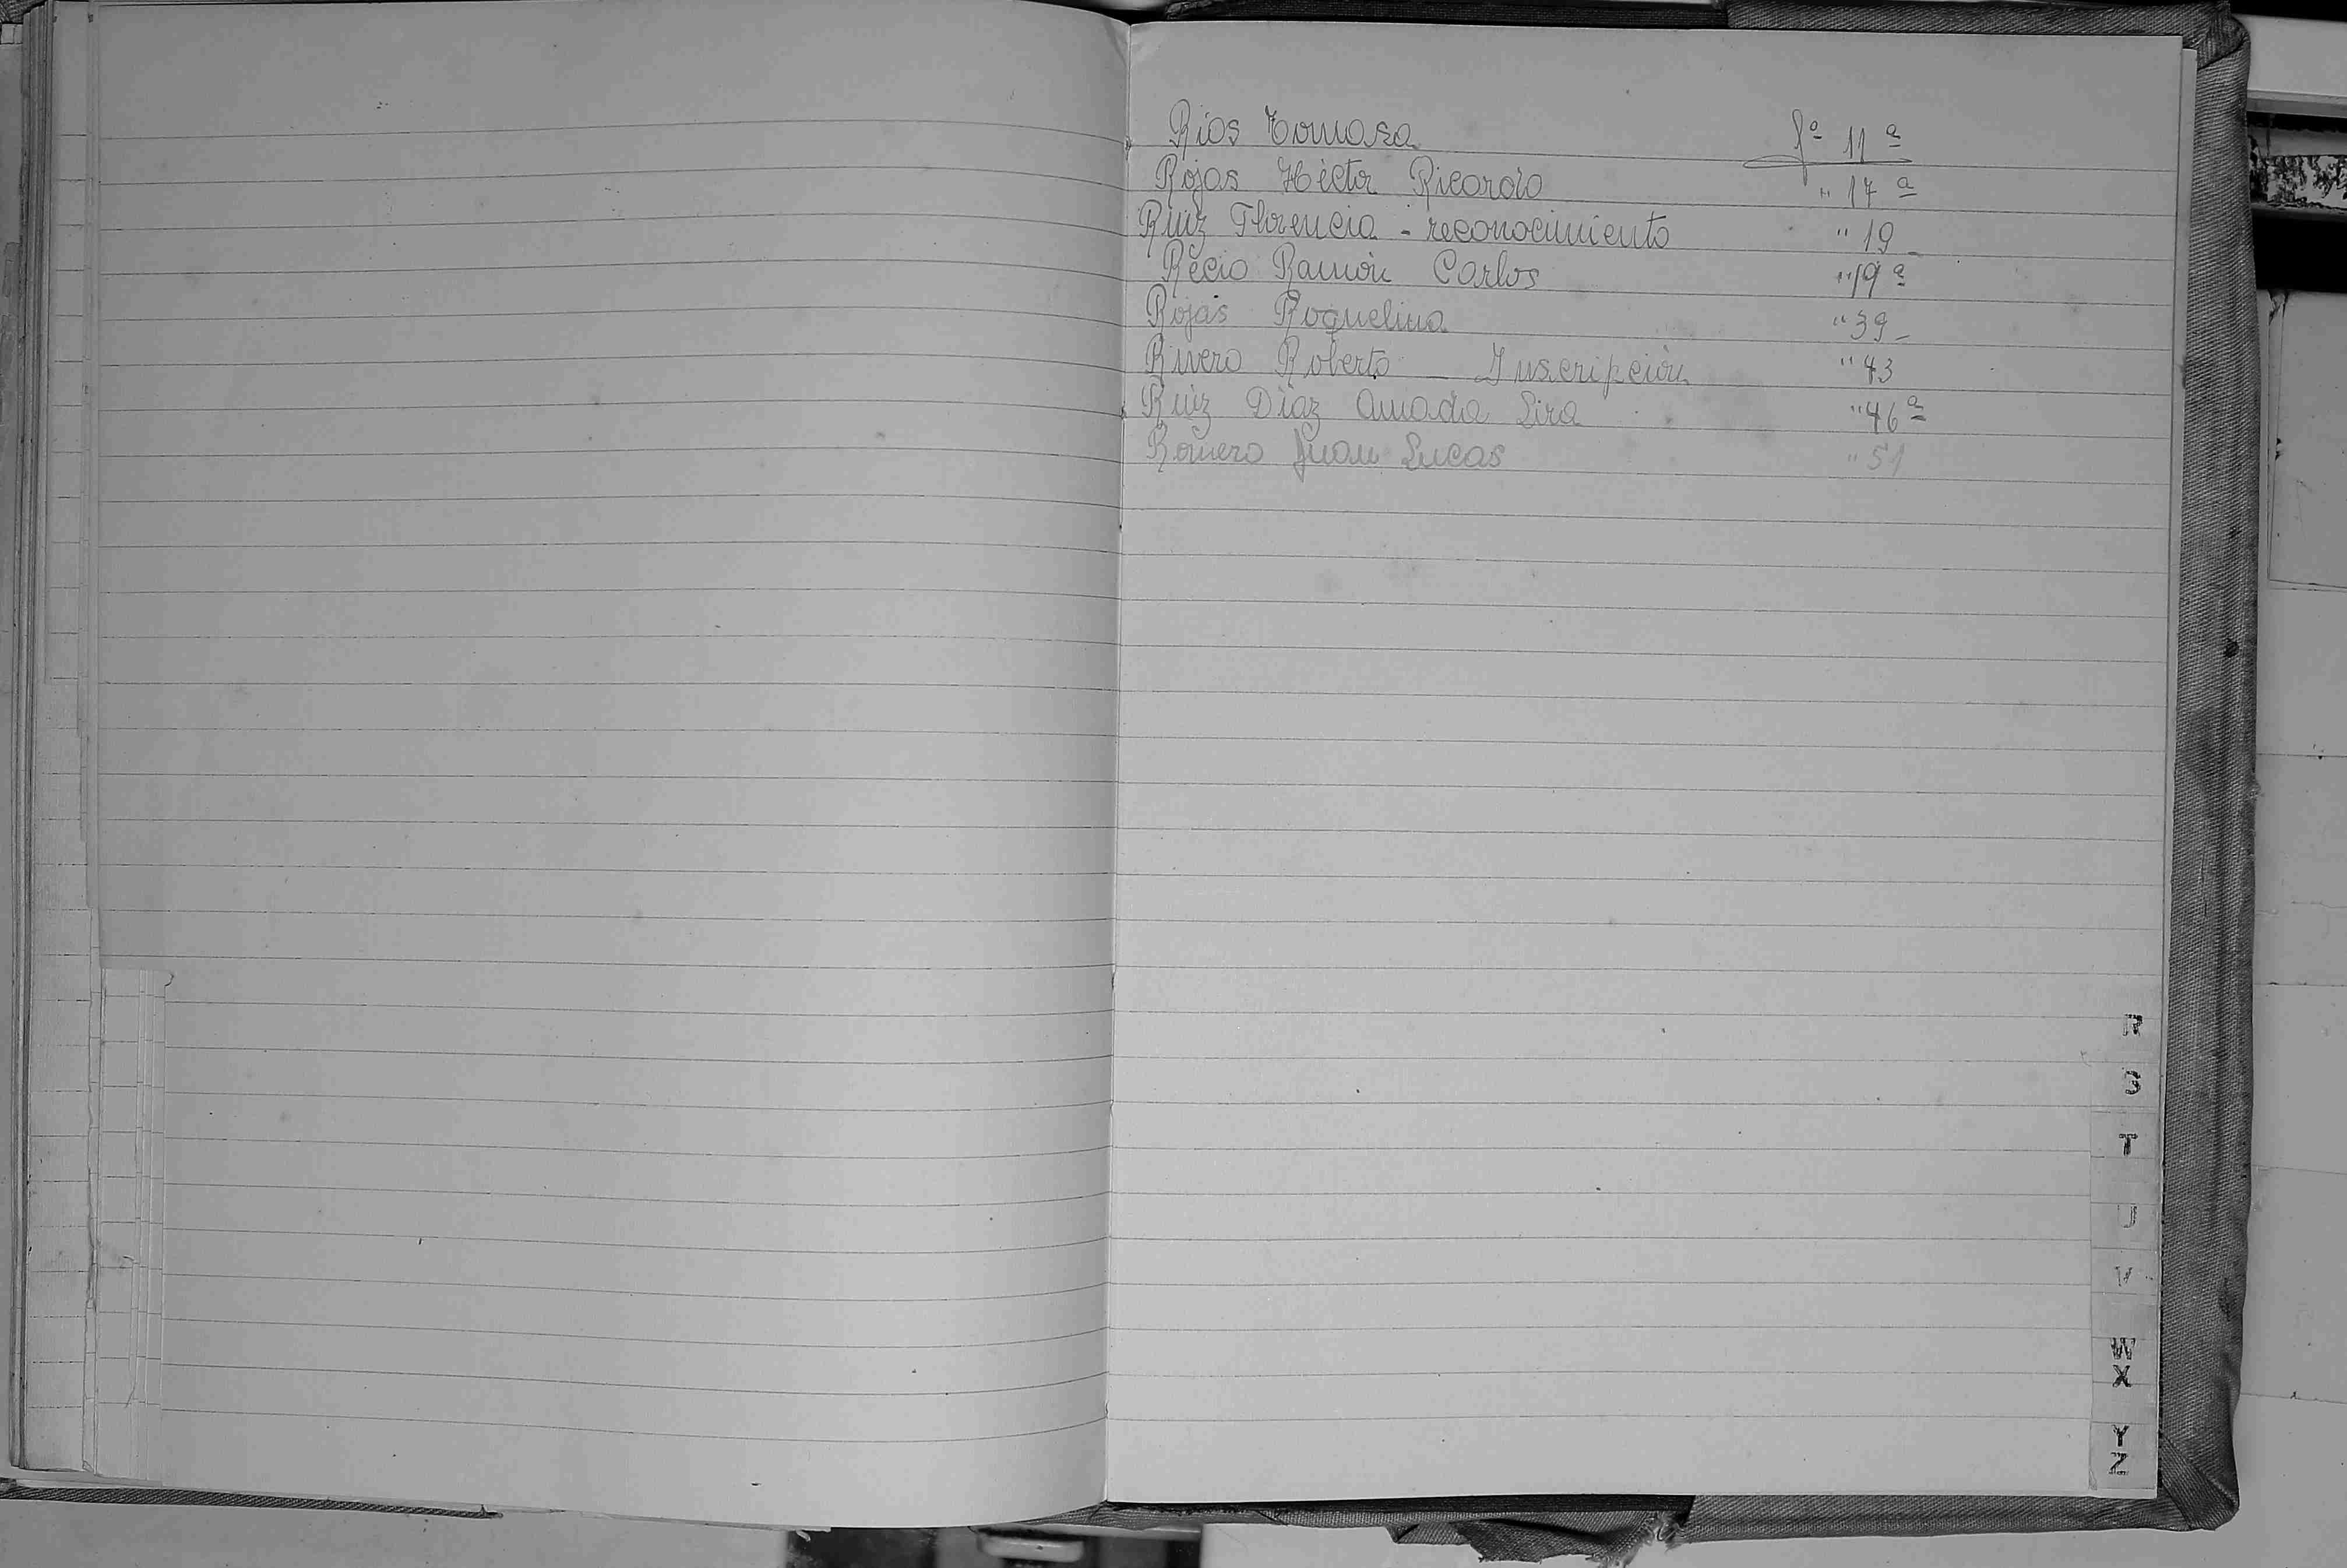 Rios Tomasa fº 11ª
Rojas Héctor Ricardo " 17ª
Ruiz Florencia - reconocimiento " 19_
Recio Ramón Carlos " 19ª
Rojas Roquelina " 39_
Rivero Roberto _ Inscripción " 43
Ruiz Diaz Amada Lira " 46ª
Romero Juan Lucas " 51
R
S
T
U
V
W
X
Y
Z